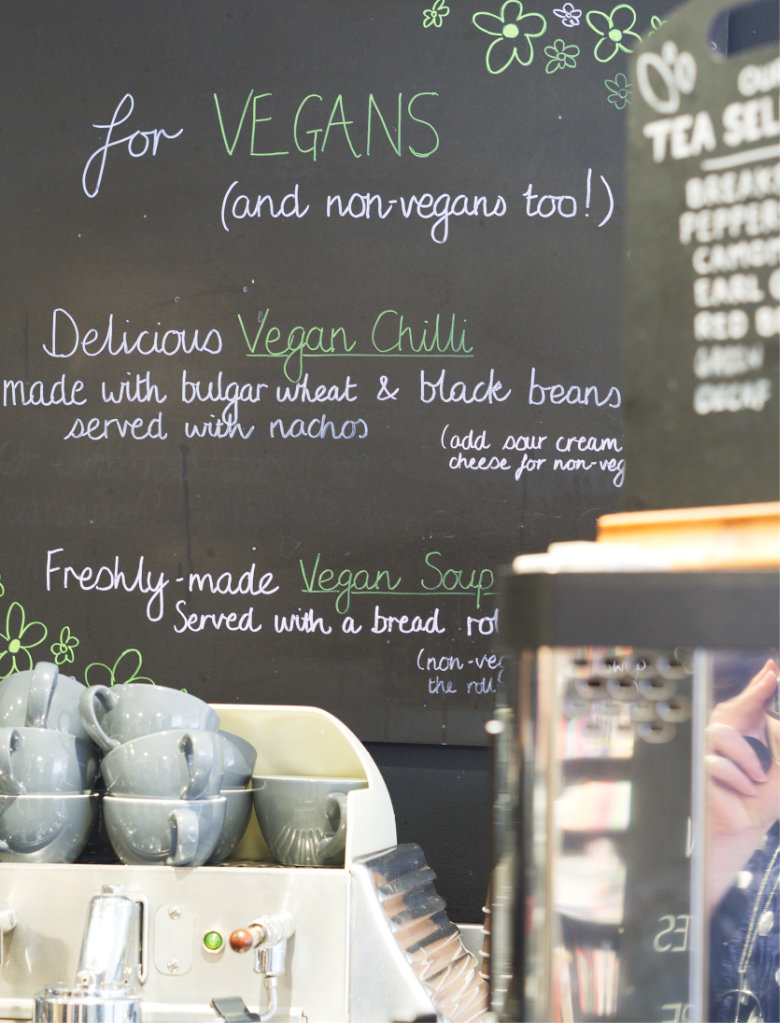 for VEGANS
(and non-vegans too!)
Delicious Vegan Chilli
made with bulgar wheat & black beans
served with nachos
(add sour cream
cheese for non-veg
Freshly-made Vegan Soup
Served with a bread rol
(non-veg
the roll
OUR
TEA SEL
BREAK
PEPPER
CAMO
EARL
RED B
GREEN
DECAF